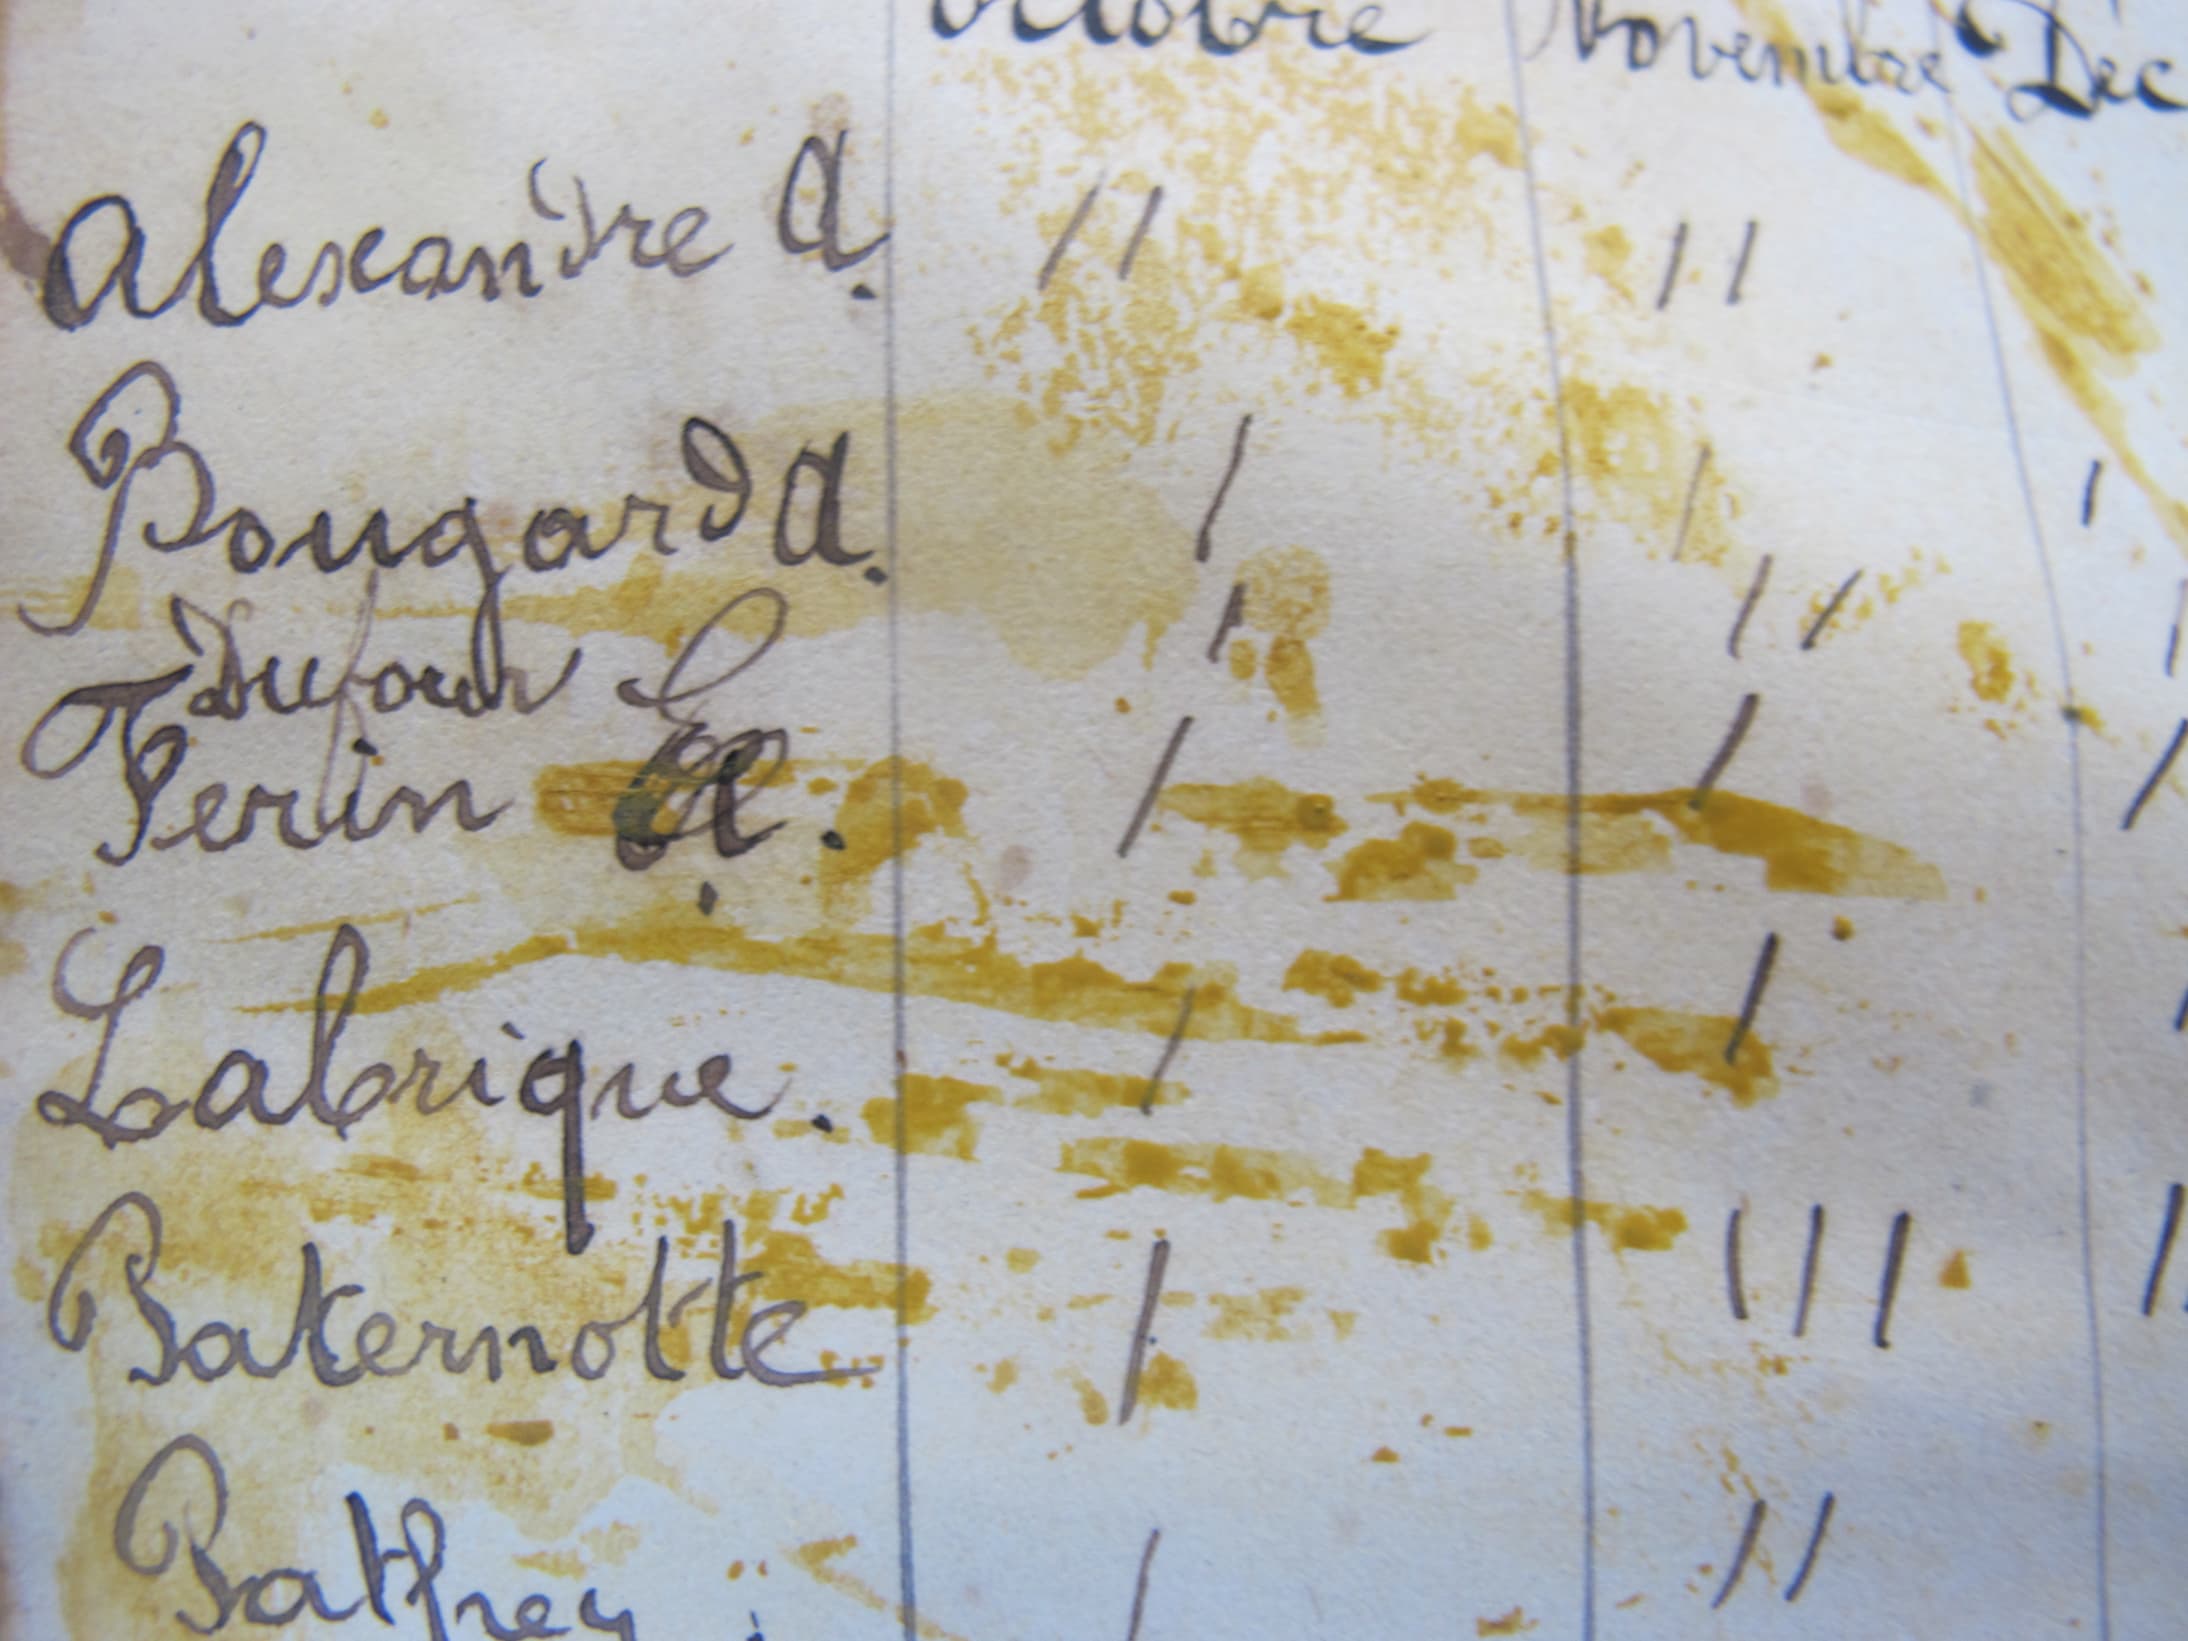 Octobre Novembre Déc
Alexandre A. // //
Bougard A. / / /
Dufour / // /
Perin A. / / /
Labrique. / / /
Paternotte / /// /
/ //